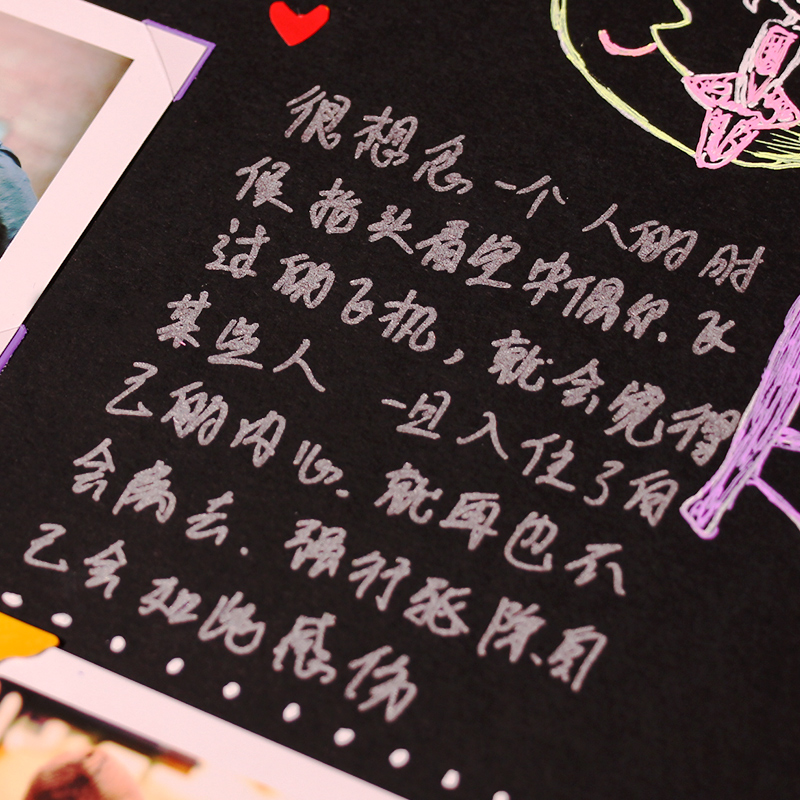 很想念一个人的时
候抬头看空中偶尔飞
过的飞机，就会觉得
某些人 一旦入住了自
己的内心.就再也不
会离去.强行移除自
己会如此感伤